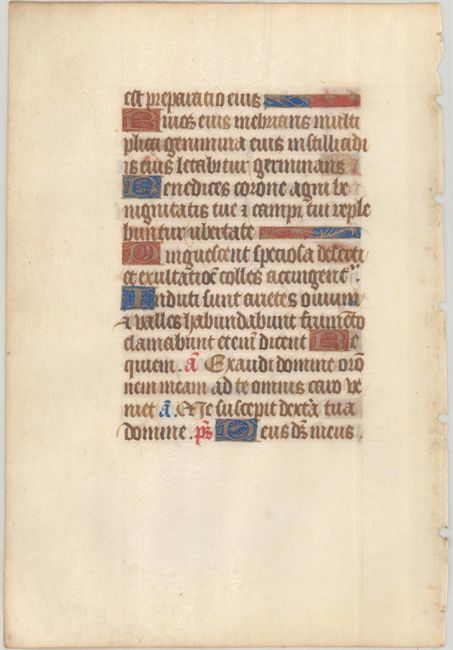 est preparatio eius
Riuos eius inebrians multi
plica genimina eius in stillicidi
is eius letabitur germinans
Benedices corone agni be
nignitatis tue ⁊ campi tui reple
buntur ubertate
Pinguescent speciosa deserti
et exultatiõe colles accingent᷑
Induti sunt arietes ouium
⁊ valles habundabunt frumẽto
clamabunt eteni᷑ dicent Re
quiem. a᷑ Exaudi domine oro
nem meam ad te omnis caro ve
niet a᷑. Me suscepit dext᷑a tua
domine. ps̃ Deus ds̃ meus.